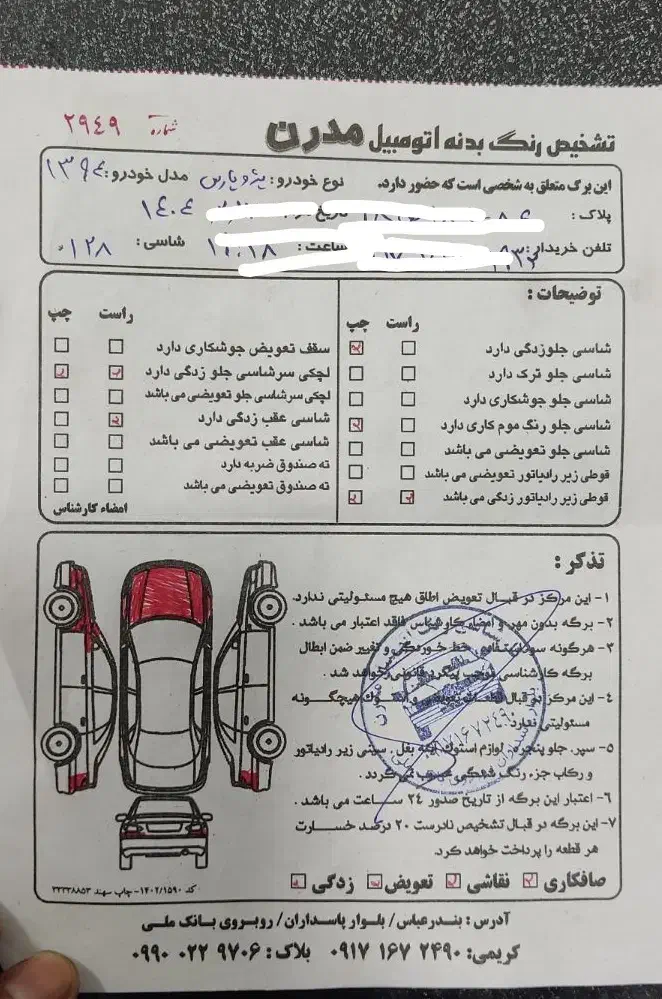 تشخیص رنگ بدنه اتومبیل مدرن
شماره ۲۹۴۹
این برگ متعلق به شخصی است که حضور دارد. نوع خودرو: پژو پارس مدل خودرو: ۱۳۹۴
پلاک: تاریخ ۱۴۰۴
تلفن خریدار: ساعت: ۱۱:۱۸ شاسی: ۱۲۸
توضیحات:
راست چپ
شاسی جلوزدگی دارد
شاسی جلو ترک دارد
شاسی جلو جوشکاری دارد
شاسی جلو رنگ موم کاری دارد
شاسی جلو تعویضی می باشد
قوطی زیر رادیاتور تعویضی می باشد
قوطی زیر رادیاتور زدگی می باشد
راست چپ
سقف تعویض جوشکاری دارد
لچکی سرشاسی جلو زدگی دارد
لچکی سرشاسی جلو تعویضی می باشد
شاسی عقب زدگی دارد
شاسی عقب تعویضی می باشد
ته صندوق ضربه دارد
ته صندوق تعویضی می باشد
امضاء کارشناس
تذکر:
۱- این مرکز در قبال تعویض اطاق هیچ مسئولیتی ندارد.
۲- برگه بدون مهر و امضاء کارشناس فاقد اعتبار می باشد.
۳- هرگونه سوء استفاده، خط خوردگی و تغییر ضمن ابطال
برگه کارشناسی موجب پیگرد قانونی خواهد شد.
۴- این مرکز در قبال قطعات تعویضی و استوک هیچگونه
مسئولیتی ندارد.
۵- سپر، جلو پنجره، لوازم استوک، آینه بغل، سینی زیر رادیاتور
و رکاب جزء رنگ شدگی محسوب نمی گردد.
۶- اعتبار این برگه از تاریخ صدور ۲۴ ساعت می باشد.
۷- این برگه در قبال تشخیص نادرست ۲۰ درصد خسارت
هر قطعه را پرداخت خواهد کرد.
صافکاری نقاشی تعویض زدگی
کد ۱۴۰۲/۱۵۹۰-چاپ سهند ۳۲۲۳۸۸۵۳
آدرس: بندرعباس/ بلوار پاسداران/ روبروی بانک ملی
کریمی: ۰۹۱۷ ۱۶۷ ۲۴۹۰ بلاک: ۰۹۹۰ ۰۲۲ ۹۷۰۶